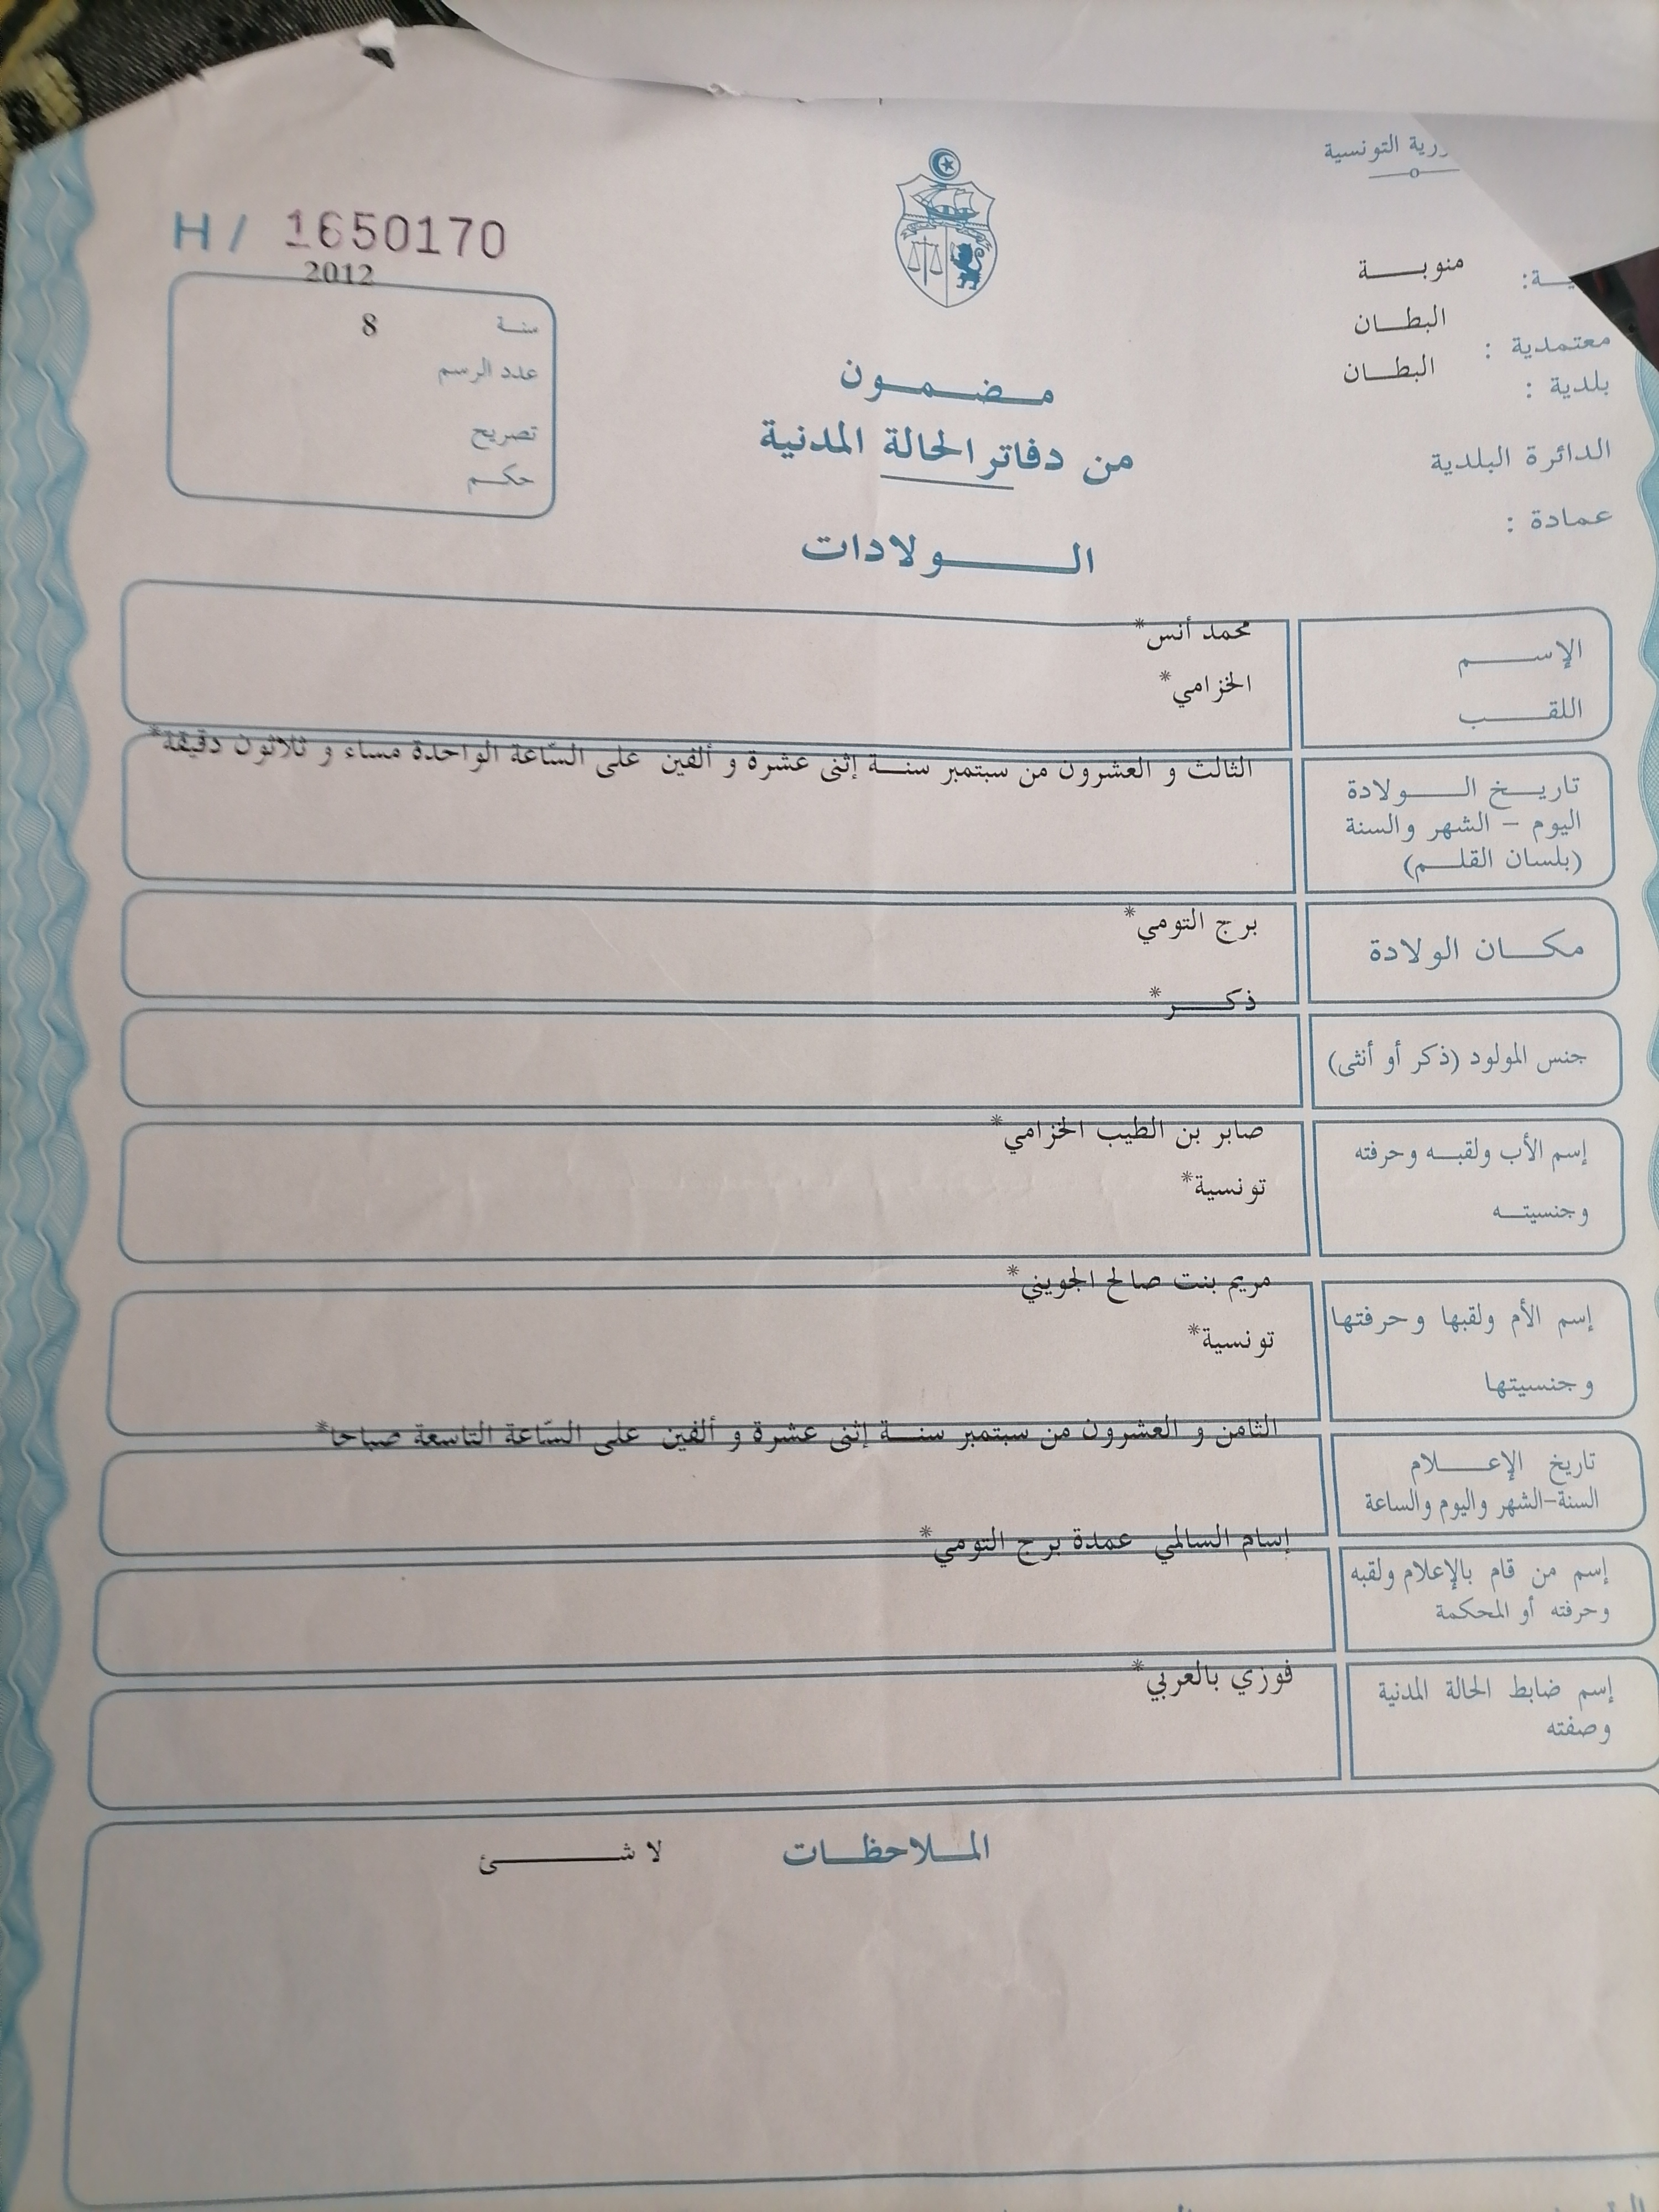 التونسية
منوبة
معتمدية : البطان
بلدية : البطان
الدائرة البلدية
عمادة :
H / 1650170
2012
سنة 8
عدد الرسم
تصريح
حكم
مضمون
من دفاتر الحالة المدنية
الولادات
الإسم محمد أنس*
اللقب الخزامي*
تاريخ الولادة
اليوم – الشهر والسنة
(بلسان القلم)
الثالث و العشرون من سبتمبر سنة إثنى عشرة و ألفين على السّاعة الواحدة مساء و ثلاثون دقيقة*
مكان الولادة برج التومي*
جنس المولود (ذكر أو أنثى) ذكر*
إسم الأب ولقبه وحرفته صابر بن الطيب الخزامي*
وجنسيته تونسية*
إسم الأم ولقبها وحرفتها مريم بنت صالح الجويني*
وجنسيتها تونسية*
تاريخ الإعلام
السنة-الشهر واليوم والساعة
الثامن و العشرون من سبتمبر سنة إثنى عشرة و ألفين على السّاعة التاسعة صباحا*
إسم من قام بالإعلام ولقبه
وحرفته أو المحكمة
السالمي عمدة برج التومي*
إسم ضابط الحالة المدنية
وصفته
فوزي بالعربي*
الملاحظات لا شئ